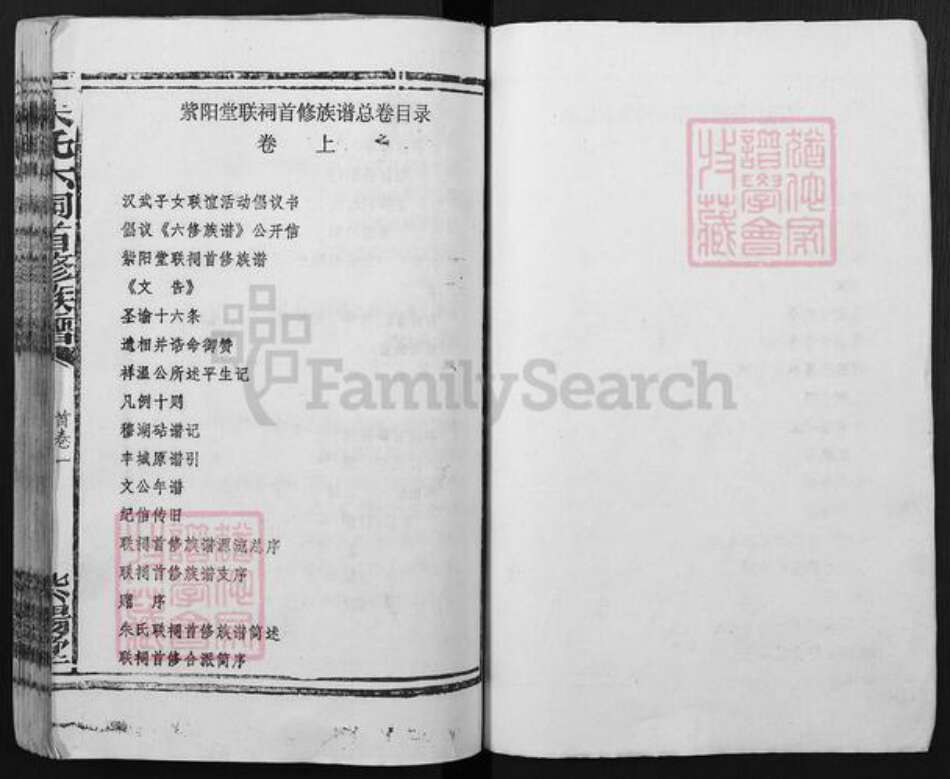 紫阳堂联祠首修族谱总卷目录
卷 上
汉武子女联谊活动倡议书
倡议《六修族谱》公开信
紫阳堂联祠首修族谱
《文 告》
圣谕十六条
遗相并诰命御赞
祥温公所述平生记
凡例十则
穆湖站谱记
丰城原谱引
文公年谱
纪信传旧
联祠首修族谱源流总序
联祠首修族谱支序
赠 序
朱氏联祠首修族谱简述
联祠首修合派简序
朱氏六祠首修族谱
首卷一
紫阳堂
FamilySearch
猶他家譜學會收藏
猶他家譜學會收藏